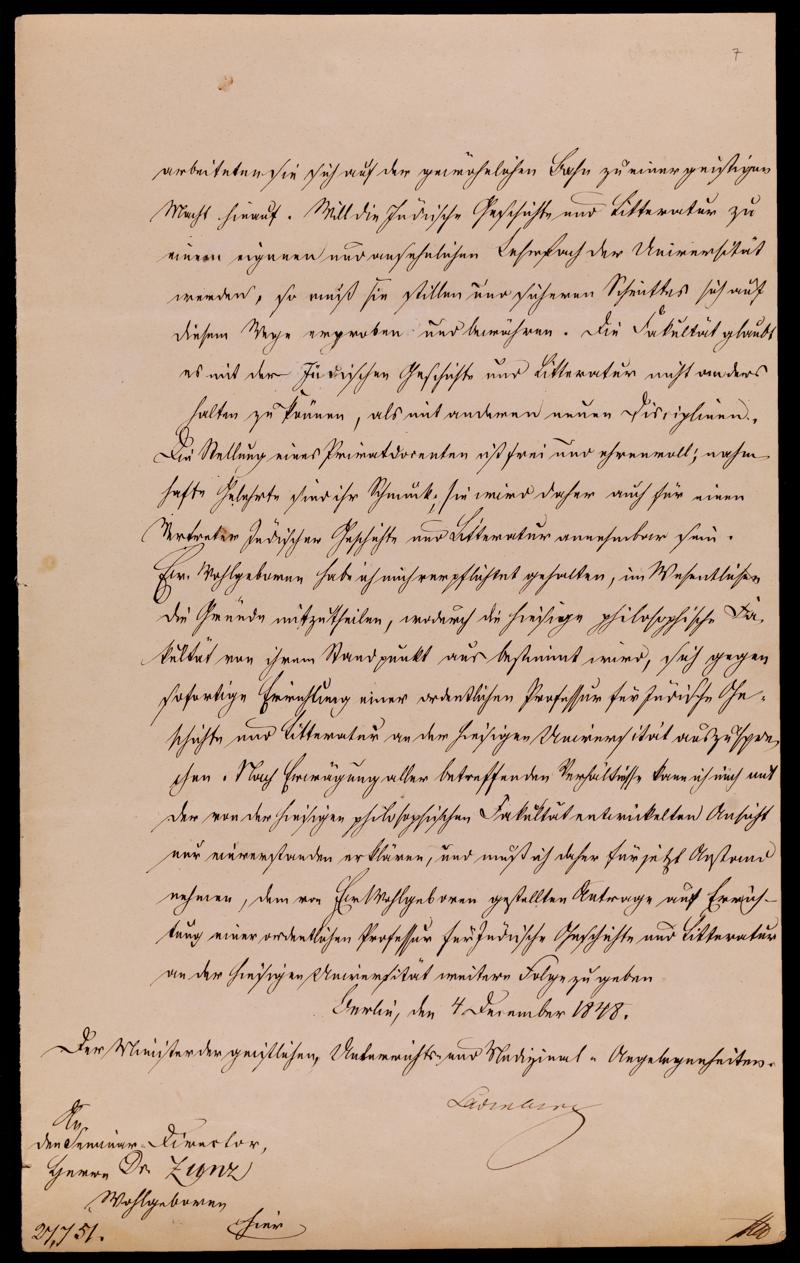 7
arbeiteten sie sich auf der gewöhnlichen Bahn zu einer geistigen
Macht hinauf. Will die Jüdische Geschichte und Litteratur zu
einem eigenen und ansehnlichen Lehrfach der Universität
werden, so muß sie stillen und sicheren Schrittes sich auf
diesem Wege erproben und bewähren. Die Fakultät glaubt
es mit der Jüdischen Geschichte und Litteratur nicht anders
halten zu können, als mit anderen neuen Disciplinen.
Die Stellung eines Privatdocenten ist frei und ehrenvoll; nahm-
hafte Gelehrte sind ihr Schmuck; sie wird daher auch für einen
Vertreter Jüdischer Geschichte und Litteratur annehmbar sein.
Ew. Wohlgeboren habe ich mich verpflichtet gehalten, im Wesentlichen
die Gründe mitzutheilen, wodurch die hiesige philosophische Fa-
kultät von ihrem Standpunkt aus bestimmt wird, sich gegen
sofortige Errichtung einer ordentlichen Professur für Jüdische Ge-
schichte und Litteratur an der hiesigen Universität auszuspre-
chen. Nach Erwägung aller betreffenden Verhältnisse kann ich mich mit
der von der hiesigen philosophischen Fakultät entwickelten Ansicht
nur einverstanden erklären, und muß ich daher für jetzt Anstand
nehmen, dem von Ew. Wohlgeboren gestellten Antrage auf Errich-
tung einer ordentlichen Professur für Jüdische Geschichte und Litteratur
an der hiesigen Universität weitere Folge zu geben
Berlin, den 4 December 1848.
Der Minister der geistlichen, Unterrichts- und Medizinal-Angelegenheiten.
Ladenberg
An
den Seminar-Director,
Herrn Dr. Zunz
Wohlgeboren
hier
27,751.